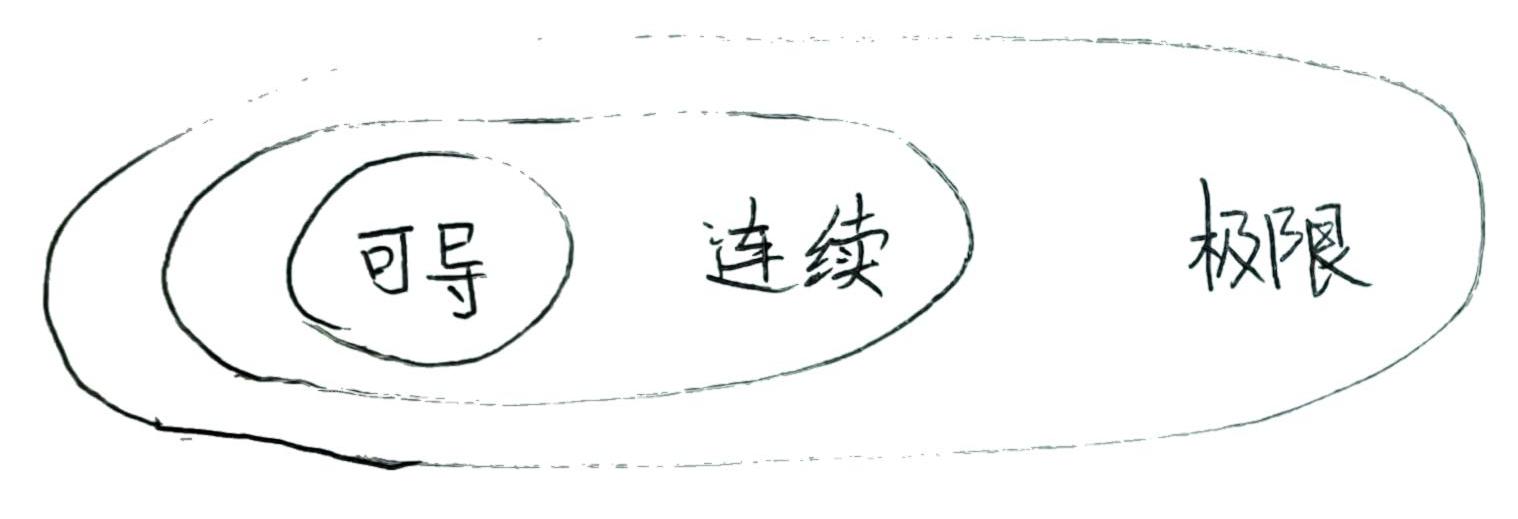 可导 连续 极限